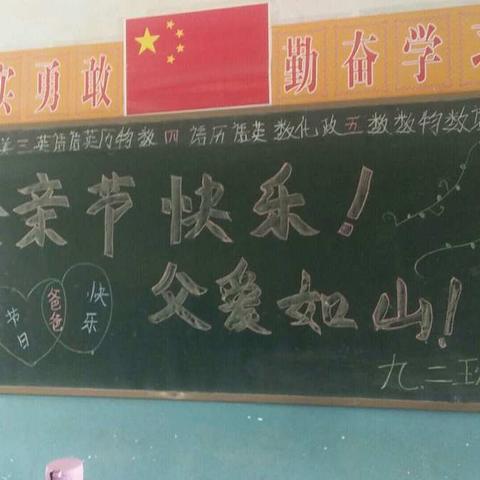 实勇敢 勤奋学习
三英语语英历物数四语历语英数化政五数数物数
亲节快乐!
父爱如山!
节日 爸爸 快乐
九二班